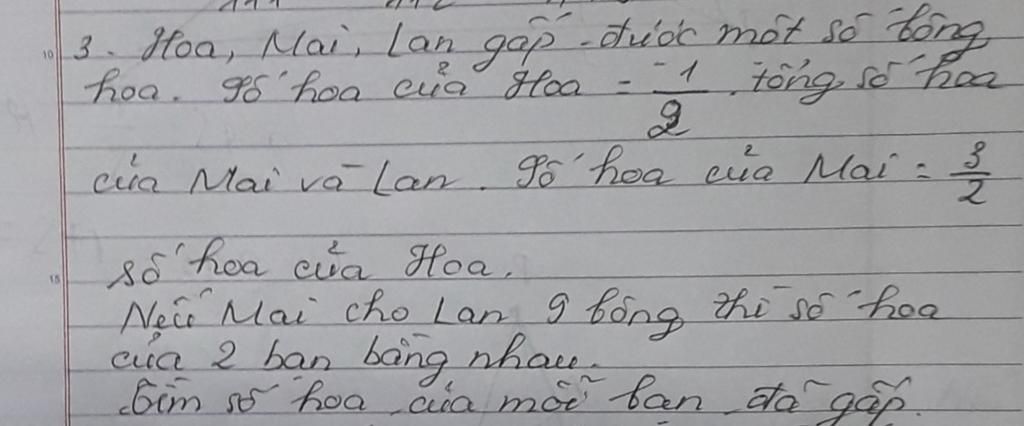 3. Hoa, Mai, Lan gấp được một số bông
hoa. Số hoa của Hoa = 1/2 tổng số hoa
của Mai và Lan. Số hoa của Mai = 3/2
số hoa của Hoa.
Nếu Mai cho Lan 9 bông thì số hoa
của 2 bạn bằng nhau.
Tìm số hoa của mỗi bạn đã gấp.